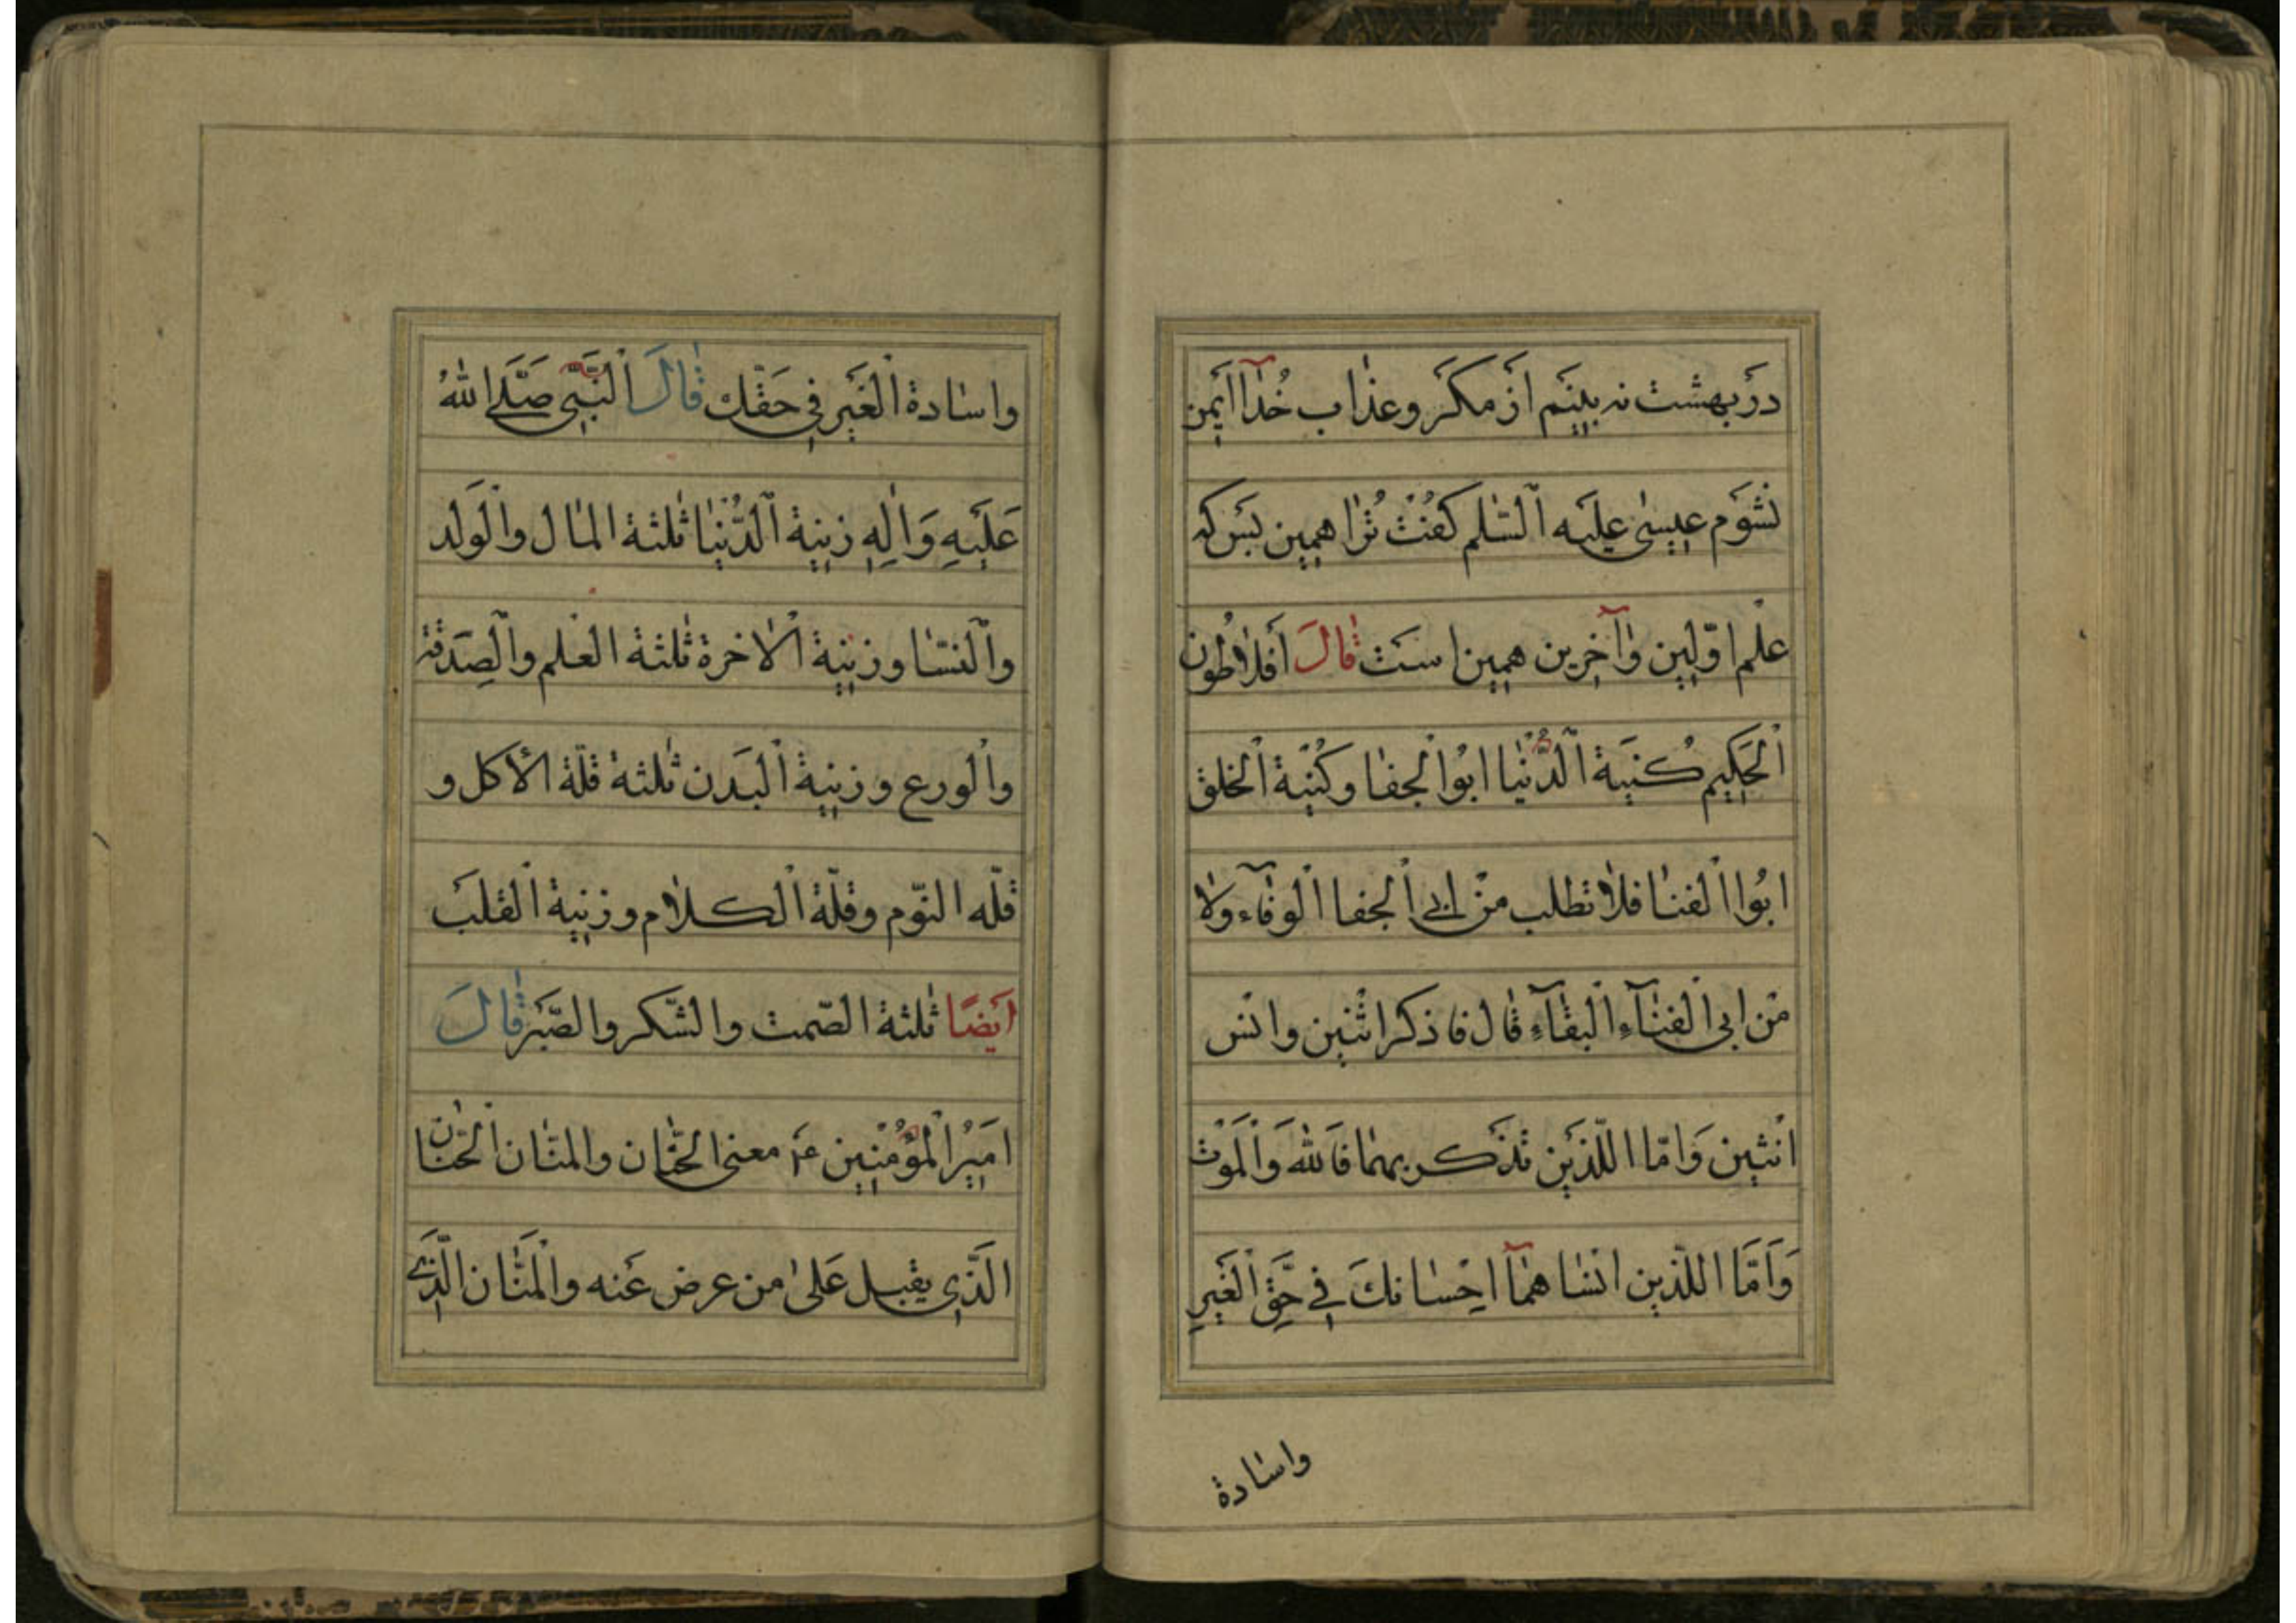 دَرْ بهشت نه بینَم اَزْ مکَر و عذاب خُدآ ایمِن
نشوَم عیسیٰ علیَه اْلسّلم کفْت تُرا همین بَس که
علْم اوّلین وَآخِرین همین اسَت قالَ اَفلاطُون
اْلحَکیم کُنیَة اْلدُّنْیا ابُوا لجفا وکُنیَة اْلخلق
ابُوا اْلفنا فلا تطلب منْ ابی اْلجفا اْلوفآء ولا
منْ ابی اْلفنآءِ اْلبقآءِ قال فاذکر اثْنین وانْس
اثنین وَامّا اللّذَین تذْکر بهما فَاللهَ وَاْلمَوْت
وَاَمَّا اللّذین انْسا همآ احْسانكَ فی حَقِّ اْلغَیرِ
واسادة
واسادة اْلغَیر فی حَقّك قالَ اْلنَّبّی صَلَّی اللهُ
عَلَیهِ وَالِهِ زینة اْلدُّنْیا ثلثة المال واْلوَلَد
واْلنسا وزینة اْلاخرة ثلثة العلم واْلصِدَقة
واْلورع وزینة اْلبدَن ثلثة قلّة الأکل و
قلّه النّوم وقلّة اْلکلام وزینة اْلقلب
ایَضًا ثلثة الصّمت والشّکر والصّبَر قالَ
امَیرُ اْلمُؤْمنین ع معنی الحنّان والمنّان اْلحنّان
الَذّی یقبل عَلیٰ من عرض عَنه واْلمَنّان الّذی